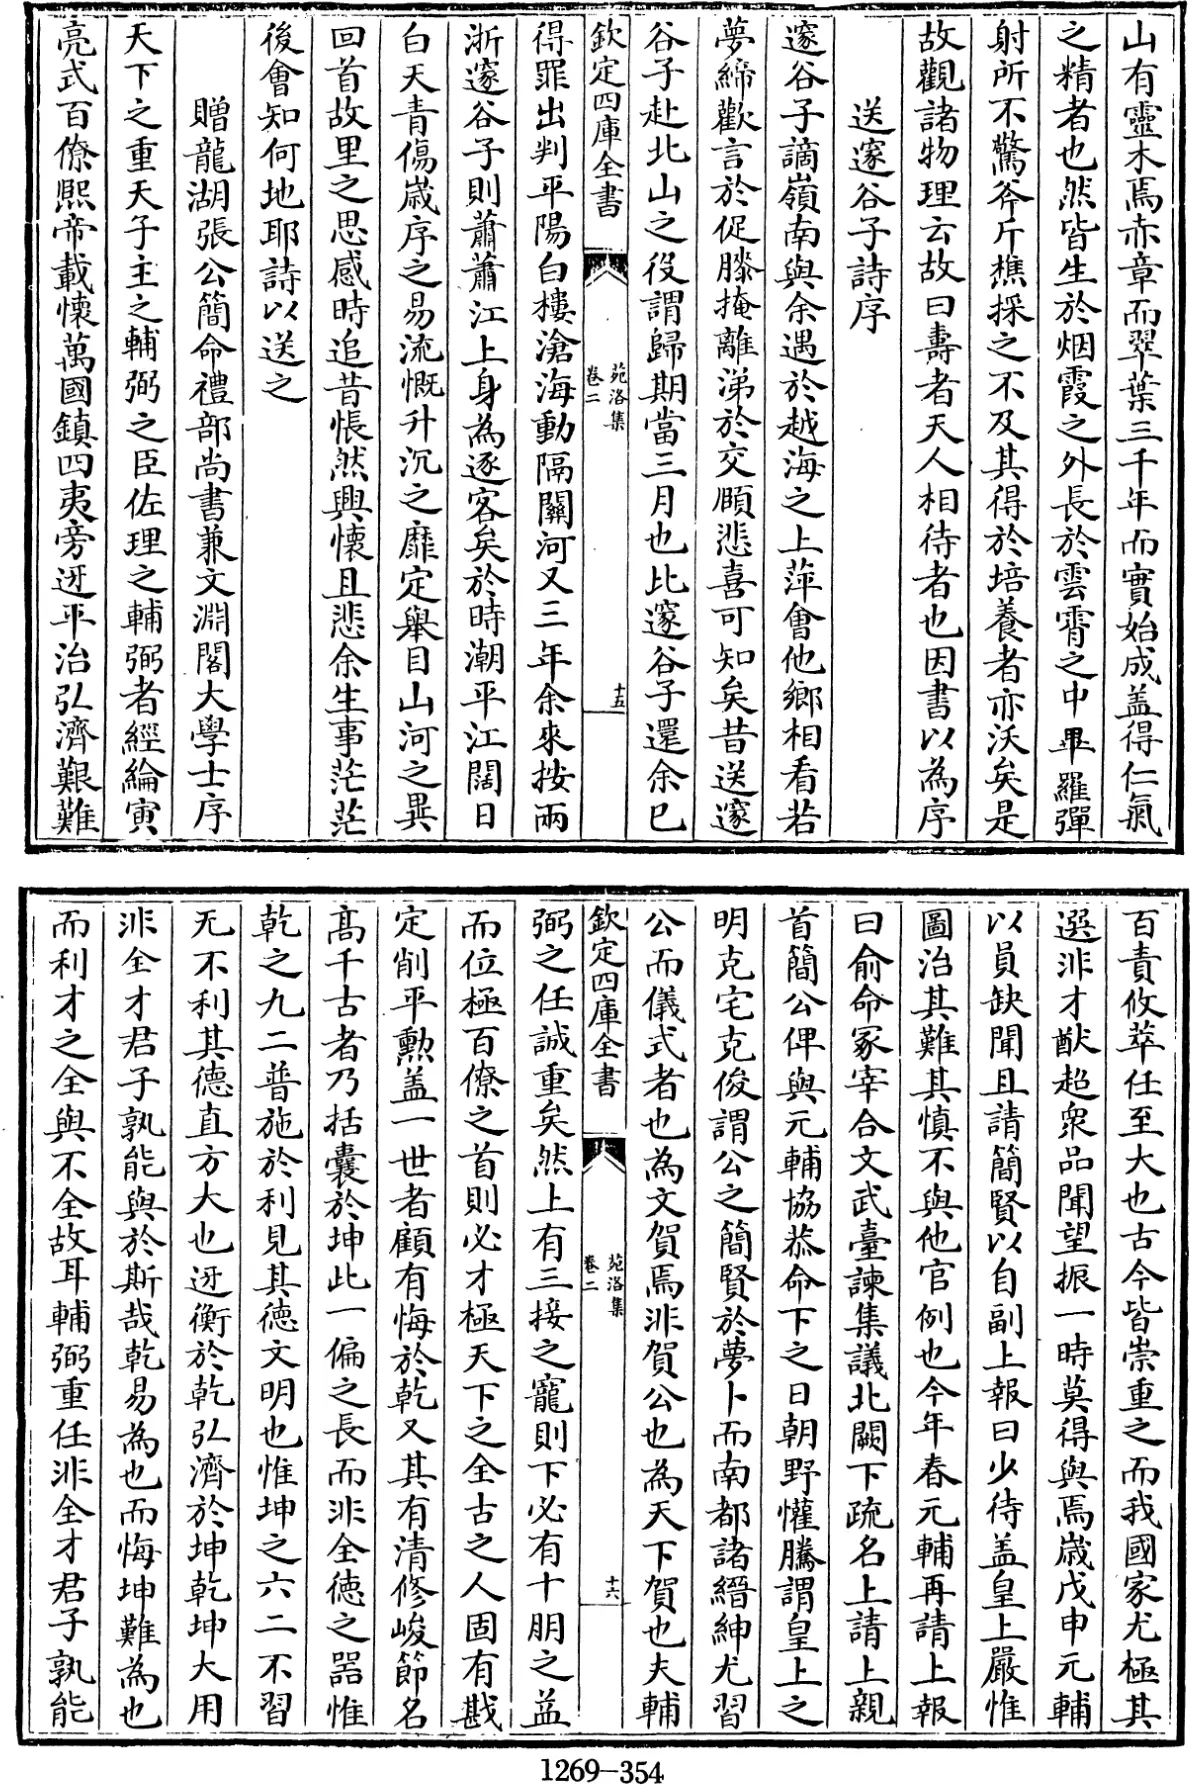 山有靈木焉赤章而翠葉三千年而實始成盖得仁氣
之精者也然皆生於烟霞之外長於雲霄之中畢羅彈
射所不驚斧斤樵採之不及其得於培養者亦沃矣是
故觀諸物理云故曰壽者天人相待者也因書以為序
送邃谷子詩序
邃谷子謫嶺南與余遇於越海之上萍會他鄉相看若
夢締歡言於促膝掩離涕於交頤悲喜可知矣昔送邃
谷子赴北山之役謂歸期當三月也比邃谷子還余已
欽定四庫全書
苑洛集
卷二
十五
得罪出判平陽白樓滄海動隔關河又三年余來按兩
浙邃谷子則蕭蕭江上身為逐客矣於時潮平江闊日
白天青傷嵗序之易流慨升沉之靡定舉目山河之異
回首故里之思感時追昔悵然興懷且悲余生事茫茫
後會知何地耶詩以送之
贈龍湖張公簡命禮部尚書兼文淵閣大學士序
天下之重天子主之輔弼之臣佐理之輔弼者經綸寅
亮式百僚熙帝載懷萬國鎮四夷旁迓平治弘濟艱難
百責攸萃任至大也古今皆崇重之而我國家尤極其
選非才猷超衆品聞望振一時莫得與焉嵗戊申元輔
以員缺聞且請簡賢以自副上報曰少待盖皇上嚴惟
圖治其難其慎不與他官例也今年春元輔再請上報
曰俞命冢宰合文武臺諫集議北闕下疏名上請上親
首簡公俾與元輔協恭命下之日朝野懽騰謂皇上之
明克宅克俊謂公之簡賢於夢卜而南都諸縉紳尤習
公而儀式者也為文賀焉非賀公也為天下賀也夫輔
欽定四庫全書
苑洛集
卷二
十六
弼之任誠重矣然上有三接之寵則下必有十朋之益
而位極百僚之首則必才極天下之全古之人固有戡
定削平勲盖一世者顧有悔於乾又其有清修峻節名
髙千古者乃括囊於坤此一偏之長而非全徳之器惟
乾之九二普施於利見其德文明也惟坤之六二不習
无不利其德直方大也迓衡於乾弘濟於坤乾坤大用
非全才君子孰能與於斯哉乾易為也而悔坤難為也
而利才之全與不全故耳輔弼重任非全才君子孰能
1269-354